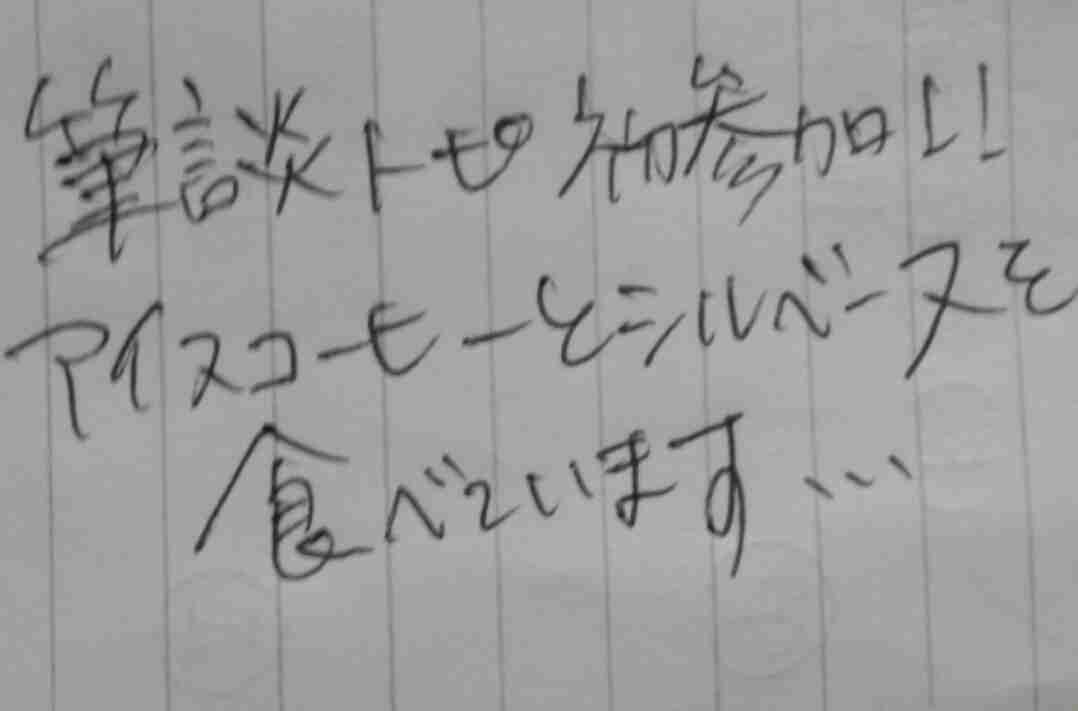 筆談トピ初参加!!
アイスコーヒーとシルベーヌを
食べています…